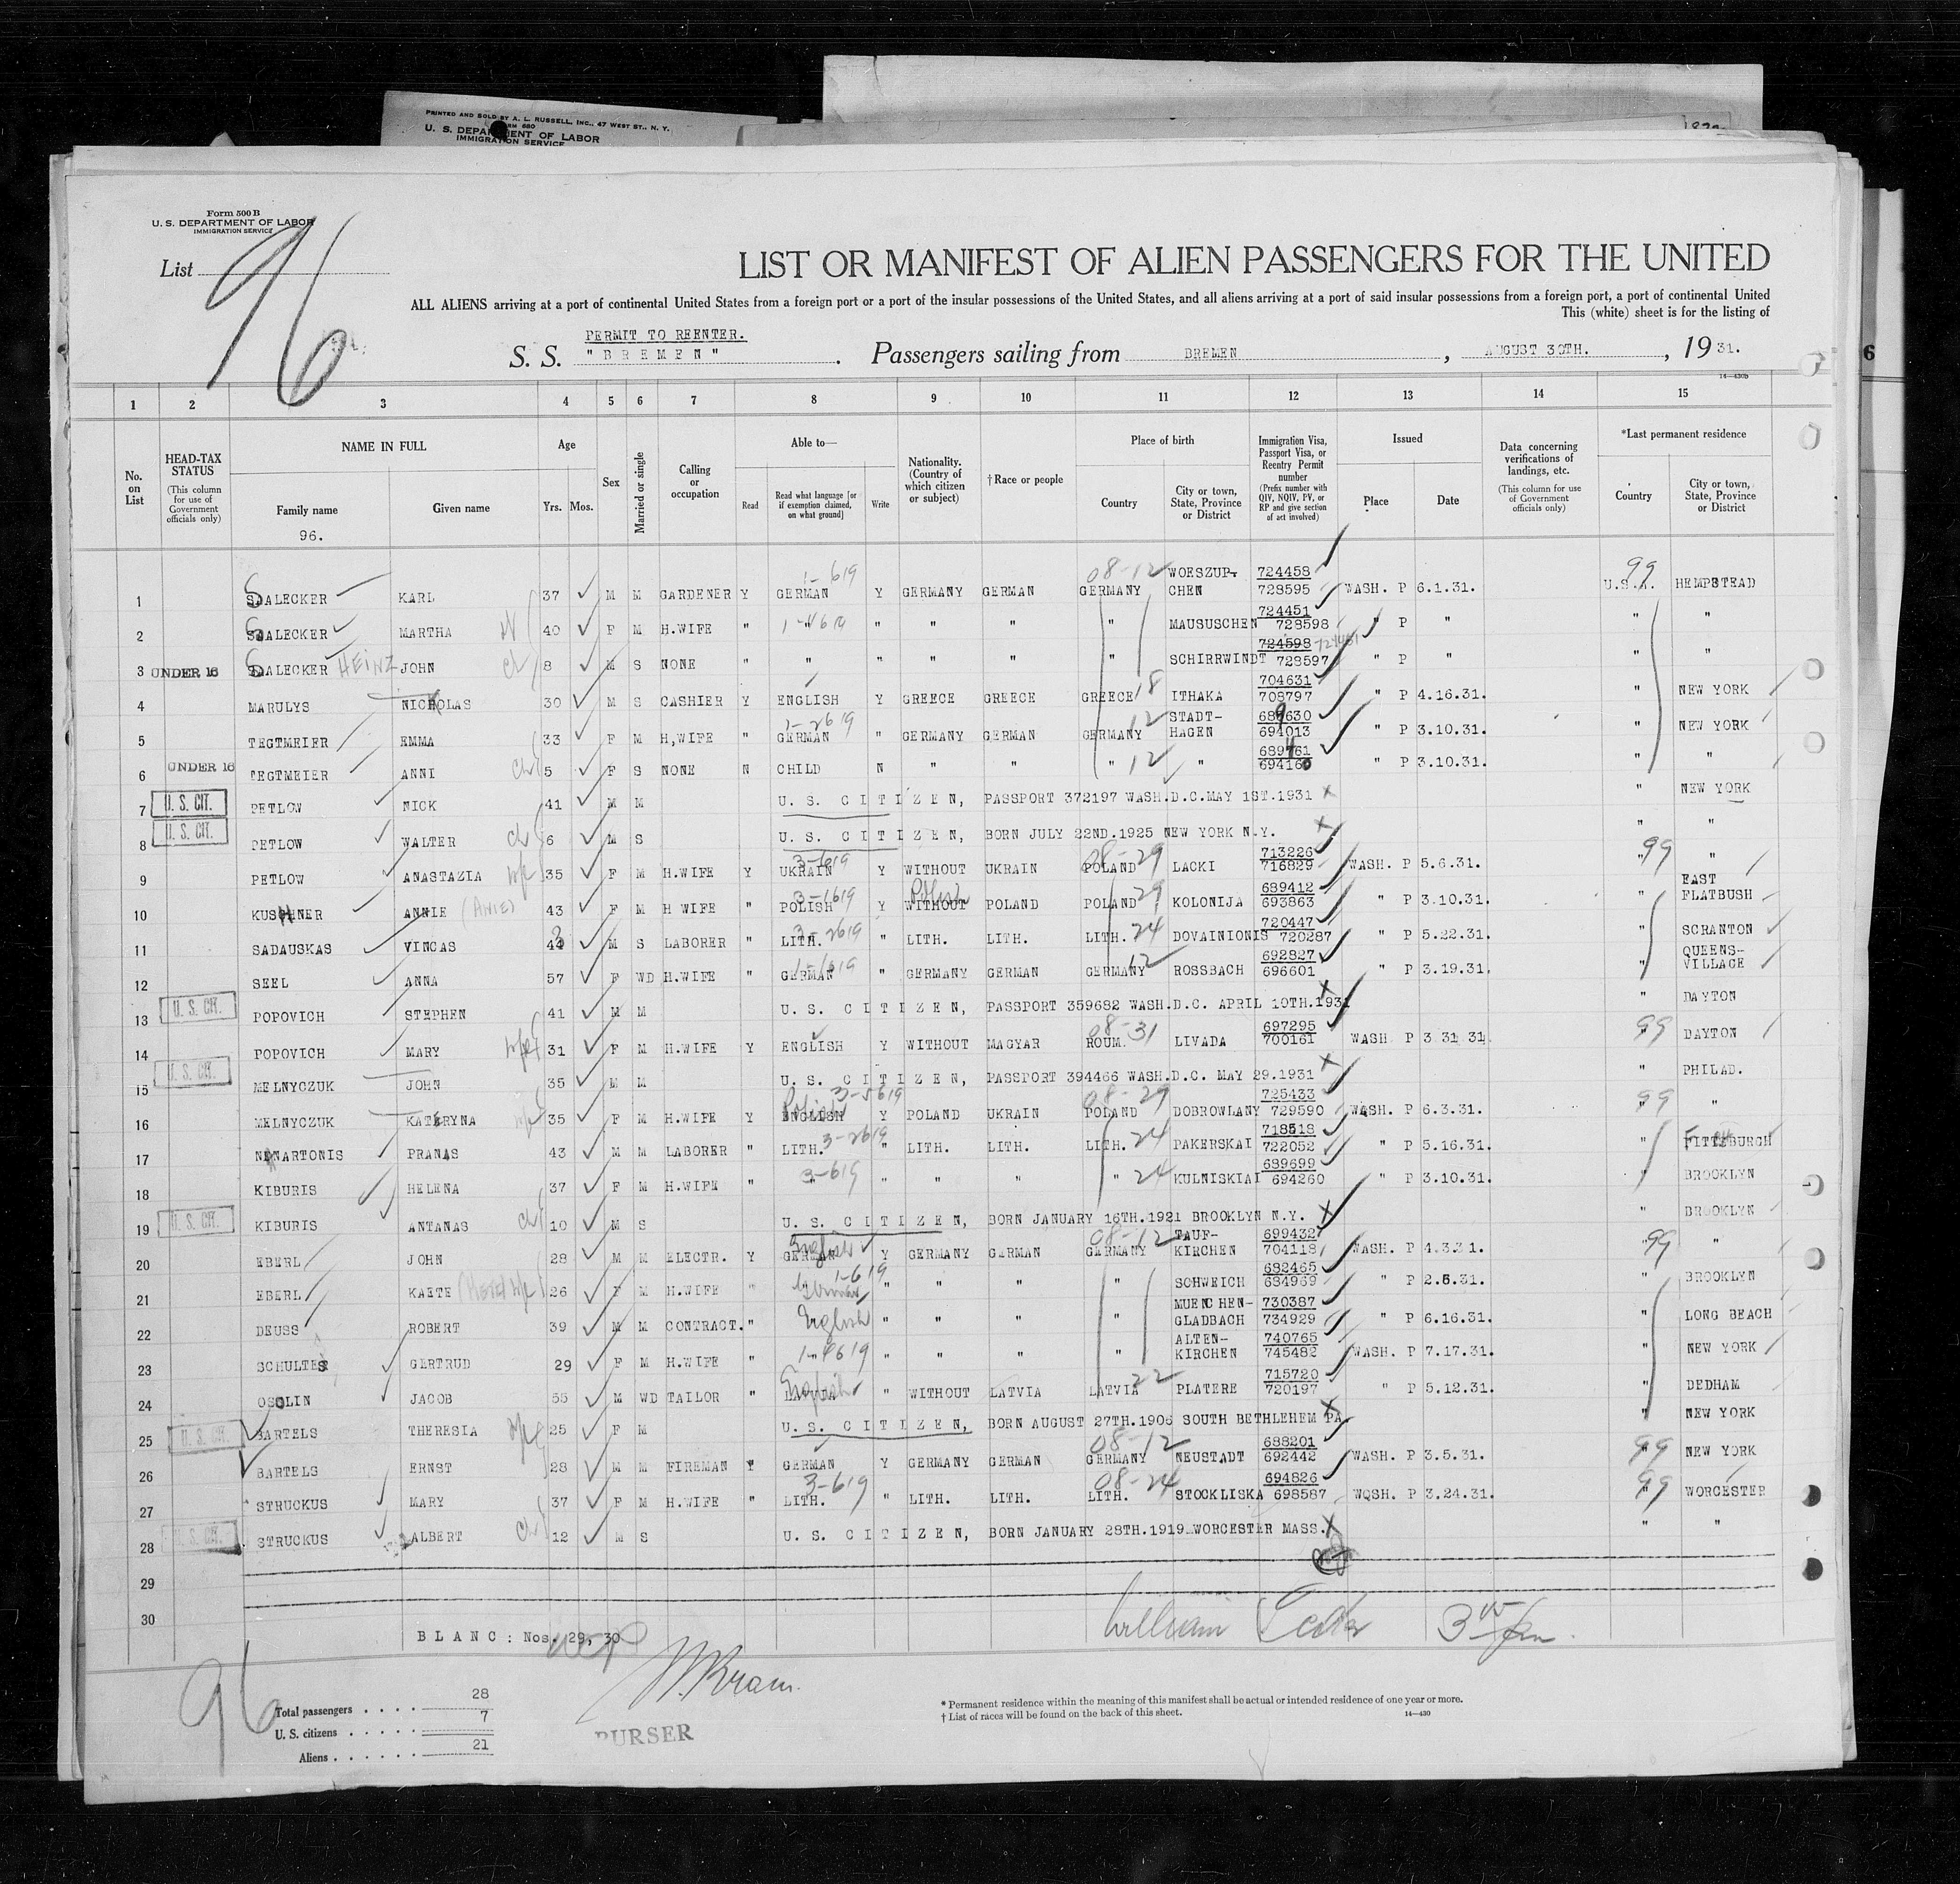 PRINTED AND SOLD BY A. L. RUSSELL, INC., 47 WEST ST., N. Y.
U. S. DEPARTMENT OF LABOR
IMMIGRATION SERVICE
Form 500 B
U. S. DEPARTMENT OF LABOR
IMMIGRATION SERVICE
List 96
LIST OR MANIFEST OF ALIEN PASSENGERS FOR THE UNITED
ALL ALIENS arriving at a port of continental United States from a foreign port or a port of the insular possessions of the United States, and all aliens arriving at a port of said insular possessions from a foreign port, a port of continental United
This (white) sheet is for the listing of
PERMIT TO REENTER.
S. S. "BREMEN". Passengers sailing from BREMEN, AUGUST 30TH., 1931.
14—430b
1 2 3 4 5 6 7 8 9 10 11 12 13 14 15
No. on List
HEAD-TAX STATUS (This column for use of Government officials only)
NAME IN FULL Family name Given name
96.
Age Yrs. Mos.
Sex
Married or single
Calling or occupation
Able to— Read Read what language [or if exemption claimed, on what ground] Write
Nationality. (Country of which citizen or subject)
†Race or people
Place of birth Country City or town, State, Province or District
Immigration Visa, Passport Visa, or Reentry Permit number (Prefix number with QIV, NQIV, PV, or RP and give section of act involved)
Issued Place Date
Data concerning verifications of landings, etc. (This column for use of Government officials only)
*Last permanent residence Country City or town, State, Province or District
1 SALECKER KARL 37 M M GARDENER Y GERMAN 1-619 Y GERMANY GERMAN GERMANY 08-12 WOESZUP-CHEN 724458 728595 WASH. P 6.1.31. U.S.A. 99 HEMPSTEAD
2 SALECKER MARTHA 40 F M H.WIFE " " " " " " MAUSUSCHEN 724451 728598 " P " " "
3 UNDER 16 SALECKER HEINZ JOHN ch 8 M S NONE " " " " " " SCHIRRWINDT 724598 728597 " P " " "
4 MARULYS NICHOLAS 30 M S CASHIER Y ENGLISH Y GREECE GREECE GREECE 18 ITHAKA 704631 708797 " P 4.16.31. " NEW YORK
5 TEGTMEIER EMMA 33 F M H,WIFE " GERMAN 1-2619 " GERMANY GERMAN GERMANY 12 STADT-HAGEN 689630 694013 " P 3.10.31. " NEW YORK
6 UNDER 16 TEGTMEIER ANNI ch 5 F S NONE N CHILD N " " " 12 " 689461 694160 " P 3.10.31. " "
7 U. S. CIT. PETLOW NICK 41 M M U. S. CITIZEN, PASSPORT 372197 WASH.D.C.MAY 1ST.1931 " NEW YORK
8 U. S. CIT. PETLOW WALTER ch 6 M S U. S. CITIZEN, BORN JULY 22ND.1925 NEW YORK N.Y. " "
9 PETLOW ANASTAZIA wife 35 F M H.WIFE Y UKRAIN 3-619 Y WITHOUT UKRAIN POLAND 08-29 LACKI 713226 716829 WASH. P 5.6.31. " 99 "
10 KUSHNER ANNIE (ANIE) 43 F M H WIFE " POLISH 3-1619 Y WITHOUT Polish POLAND POLAND 29 KOLONIJA 689412 693863 " P 3.10.31. EAST FLATBUSH
11 SADAUSKAS VINCAS M S LABORER " LITH. 3-2619 " LITH. LITH. LITH. 24 DOVAINIONIS 720447 720287 " P 5.22.31. " SCRANTON
12 SEEL ANNA 57 F WD H.WIFE " GERMAN 1-1619 " GERMANY GERMAN GERMANY 12 ROSSBACH 692827 696601 " P 3.19.31. " QUEENS-VILLAGE
13 U. S. CIT. POPOVICH STEPHEN 41 M M U. S. CITIZEN, PASSPORT 359682 WASH.D.C. APRIL 10TH.1931 " DAYTON
14 POPOVICH MARY wife 31 F M H.WIFE Y ENGLISH Y WITHOUT MAGYAR ROUM. 08-31 LIVADA 697295 700161 WASH P 3 31 31 " 99 DAYTON
15 U. S. CIT. MELNYCZUK JOHN 35 M M U. S. CITIZEN, PASSPORT 394466 WASH.D.C. MAY 29.1931 " PHILAD.
16 MELNYCZUK KATERYNA wife 35 F M H.WIFE Y ENGLISH Polish 3-5619 Y POLAND UKRAIN POLAND 08-29 DOBROWLANY 725433 729590 WASH. P 6.3.31. 99 "
17 NENARTONIS PRANAS 43 M M LABORER " LITH. 3-2619 " LITH. LITH. LITH. 24 PAKERSKAI 718518 722052 " P 5.16.31. " PITTSBURGH
18 KIBURIS HELENA 37 F M H.WIFE " 3-619 " " " " 24 KULNISKIAI 689699 694260 " P 3.10.31. " BROOKLYN
19 U. S. CIT. KIBURIS ANTANAS ch 10 M S U. S. CITIZEN, BORN JANUARY 16TH.1921 BROOKLYN N.Y. " BROOKLYN
20 EBERL JOHN 28 M M ELECTR. Y GERMAN English Y GERMANY GERMAN GERMANY 08-12 TAUF-KIRCHEN 699432 704118 WASH. P 4.3.31. 99 "
21 EBERL KAETE 26 F M H.WIFE " German 1-619 " " " " SCHWEICH 682465 684969 " P 2.5.31. " BROOKLYN
22 DEUSS ROBERT 39 M M CONTRACT. " English " " " " MUENCHEN-GLADBACH 730387 734929 " P 6.16.31. " LONG BEACH
23 SCHULTES GERTRUD 29 F M H.WIFE " 1-4619 " " " " ALTEN-KIRCHEN 740765 745482 WASH. P 7.17.31. " NEW YORK
24 OSOLIN JACOB 55 M WD TAILOR " English " WITHOUT LATVIA LATVIA 22 PLATERE 715720 720197 " P 5.12.31. " DEDHAM
25 U. S. CIT. BARTELS THERESIA wife 25 F M U. S. CITIZEN, BORN AUGUST 27TH.1906 SOUTH BETHLEHEM PA. " NEW YORK
26 BARTELS ERNST 28 M M FIREMAN Y GERMAN Y GERMANY GERMAN GERMANY 08-12 NEUSTADT 688201 692442 WASH. P 3.5.31. 99 NEW YORK
27 STRUCKUS MARY 37 F M H.WIFE " LITH. 3-619 " LITH. LITH. LITH. 08-24 STOCKLISKA 694826 698587 WQSH. P 3.24.31. 99 WORCESTER
28 U. S. CIT. STRUCKUS ALBERT ch 12 M S U. S. CITIZEN, BORN JANUARY 28TH.1919 WORCESTER MASS. " "
29
30
BLANC: Nos. 29, 30
William
96
Total passengers . . . . 28
U. S. citizens . . . . . 7
Aliens . . . . . . 21
PURSER
* Permanent residence within the meaning of this manifest shall be actual or intended residence of one year or more.
† List of races will be found on the back of this sheet.
14—430